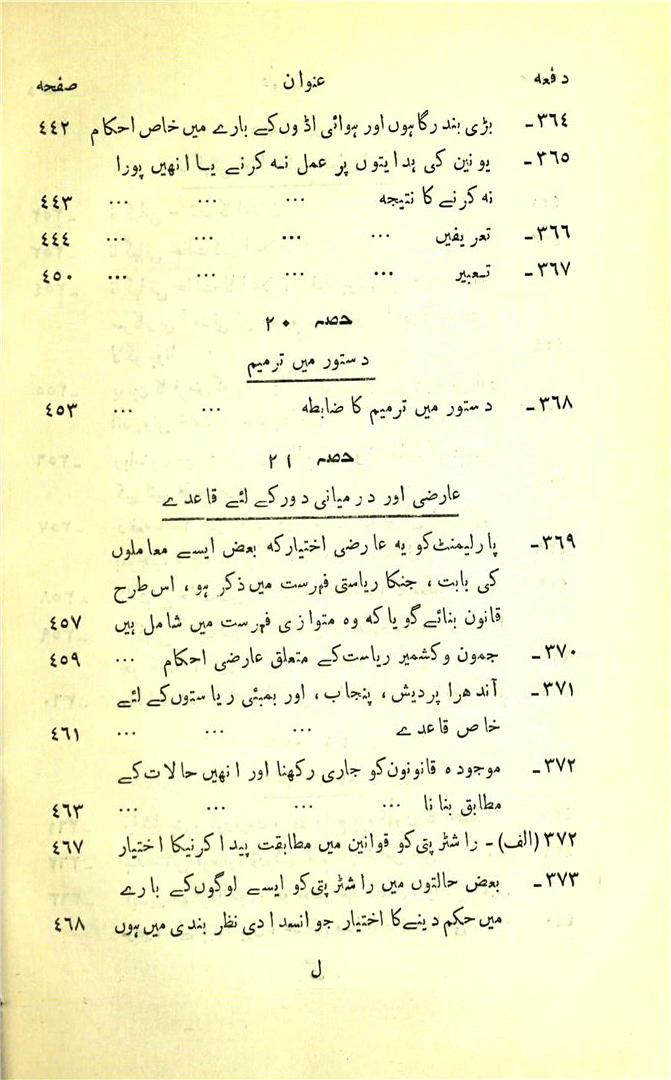 دفعہ عنوان صفحہ
٣٦٤۔ بڑی بندرگاہوں اور ہوائی اڈوں کے بارے میں خاص احکام ٤٤٢
٣٦٥۔ یونین کی ہدایتوں پر عمل نہ کرنے یا انھیں پورا
نہ کرنے کا نتیجہ ... ... ... ٤٤٣
٣٦٦۔ تعریفیں ... ... ... ... ٤٤٤
٣٦٧۔ تعبیر ... ... ... ... ٤٥٠
حصہ ٢٠
دستور میں ترمیم
٣٦٨۔ دستور میں ترمیم کا ضابطہ ... ... ٤٥٣
حصہ ٢١
عارضی اور درمیانی دور کے لئے قاعدے
٣٦٩۔ پارلیمنٹ کو یہ عارضی اختیار کہ بعض ایسے معاملوں
کی بابت ، جنکا ریاستی فہرست میں ذکر ہو ، اس طرح
قانون بنائے گویا کہ وہ متوازی فہرست میں شامل ہیں ٤٥٧
٣٧٠۔ جموں و کشمیر ریاست کے متعلق عارضی احکام ... ٤٥٩
٣٧١۔ آندھرا پردیش ، پنجاب ، اور بمبئی ریاستوں کے لئے
خاص قاعدے ... ... ... ٤٦١
٣٧٢۔ موجودہ قانونوں کو جاری رکھنا اور انھیں حالات کے
مطابق بنانا ... ... ... ... ٤٦٣
٣٧٢ (الف)۔ راشٹرپتی کو قوانین میں مطابقت پیدا کرنیکا اختیار ٤٦٧
٣٧٣۔ بعض حالتوں میں راشٹرپتی کو ایسے لوگوں کے بارے
میں حکم دینے کا اختیار جو انسدادی نظر بندی میں ہوں ٤٦٨
ل